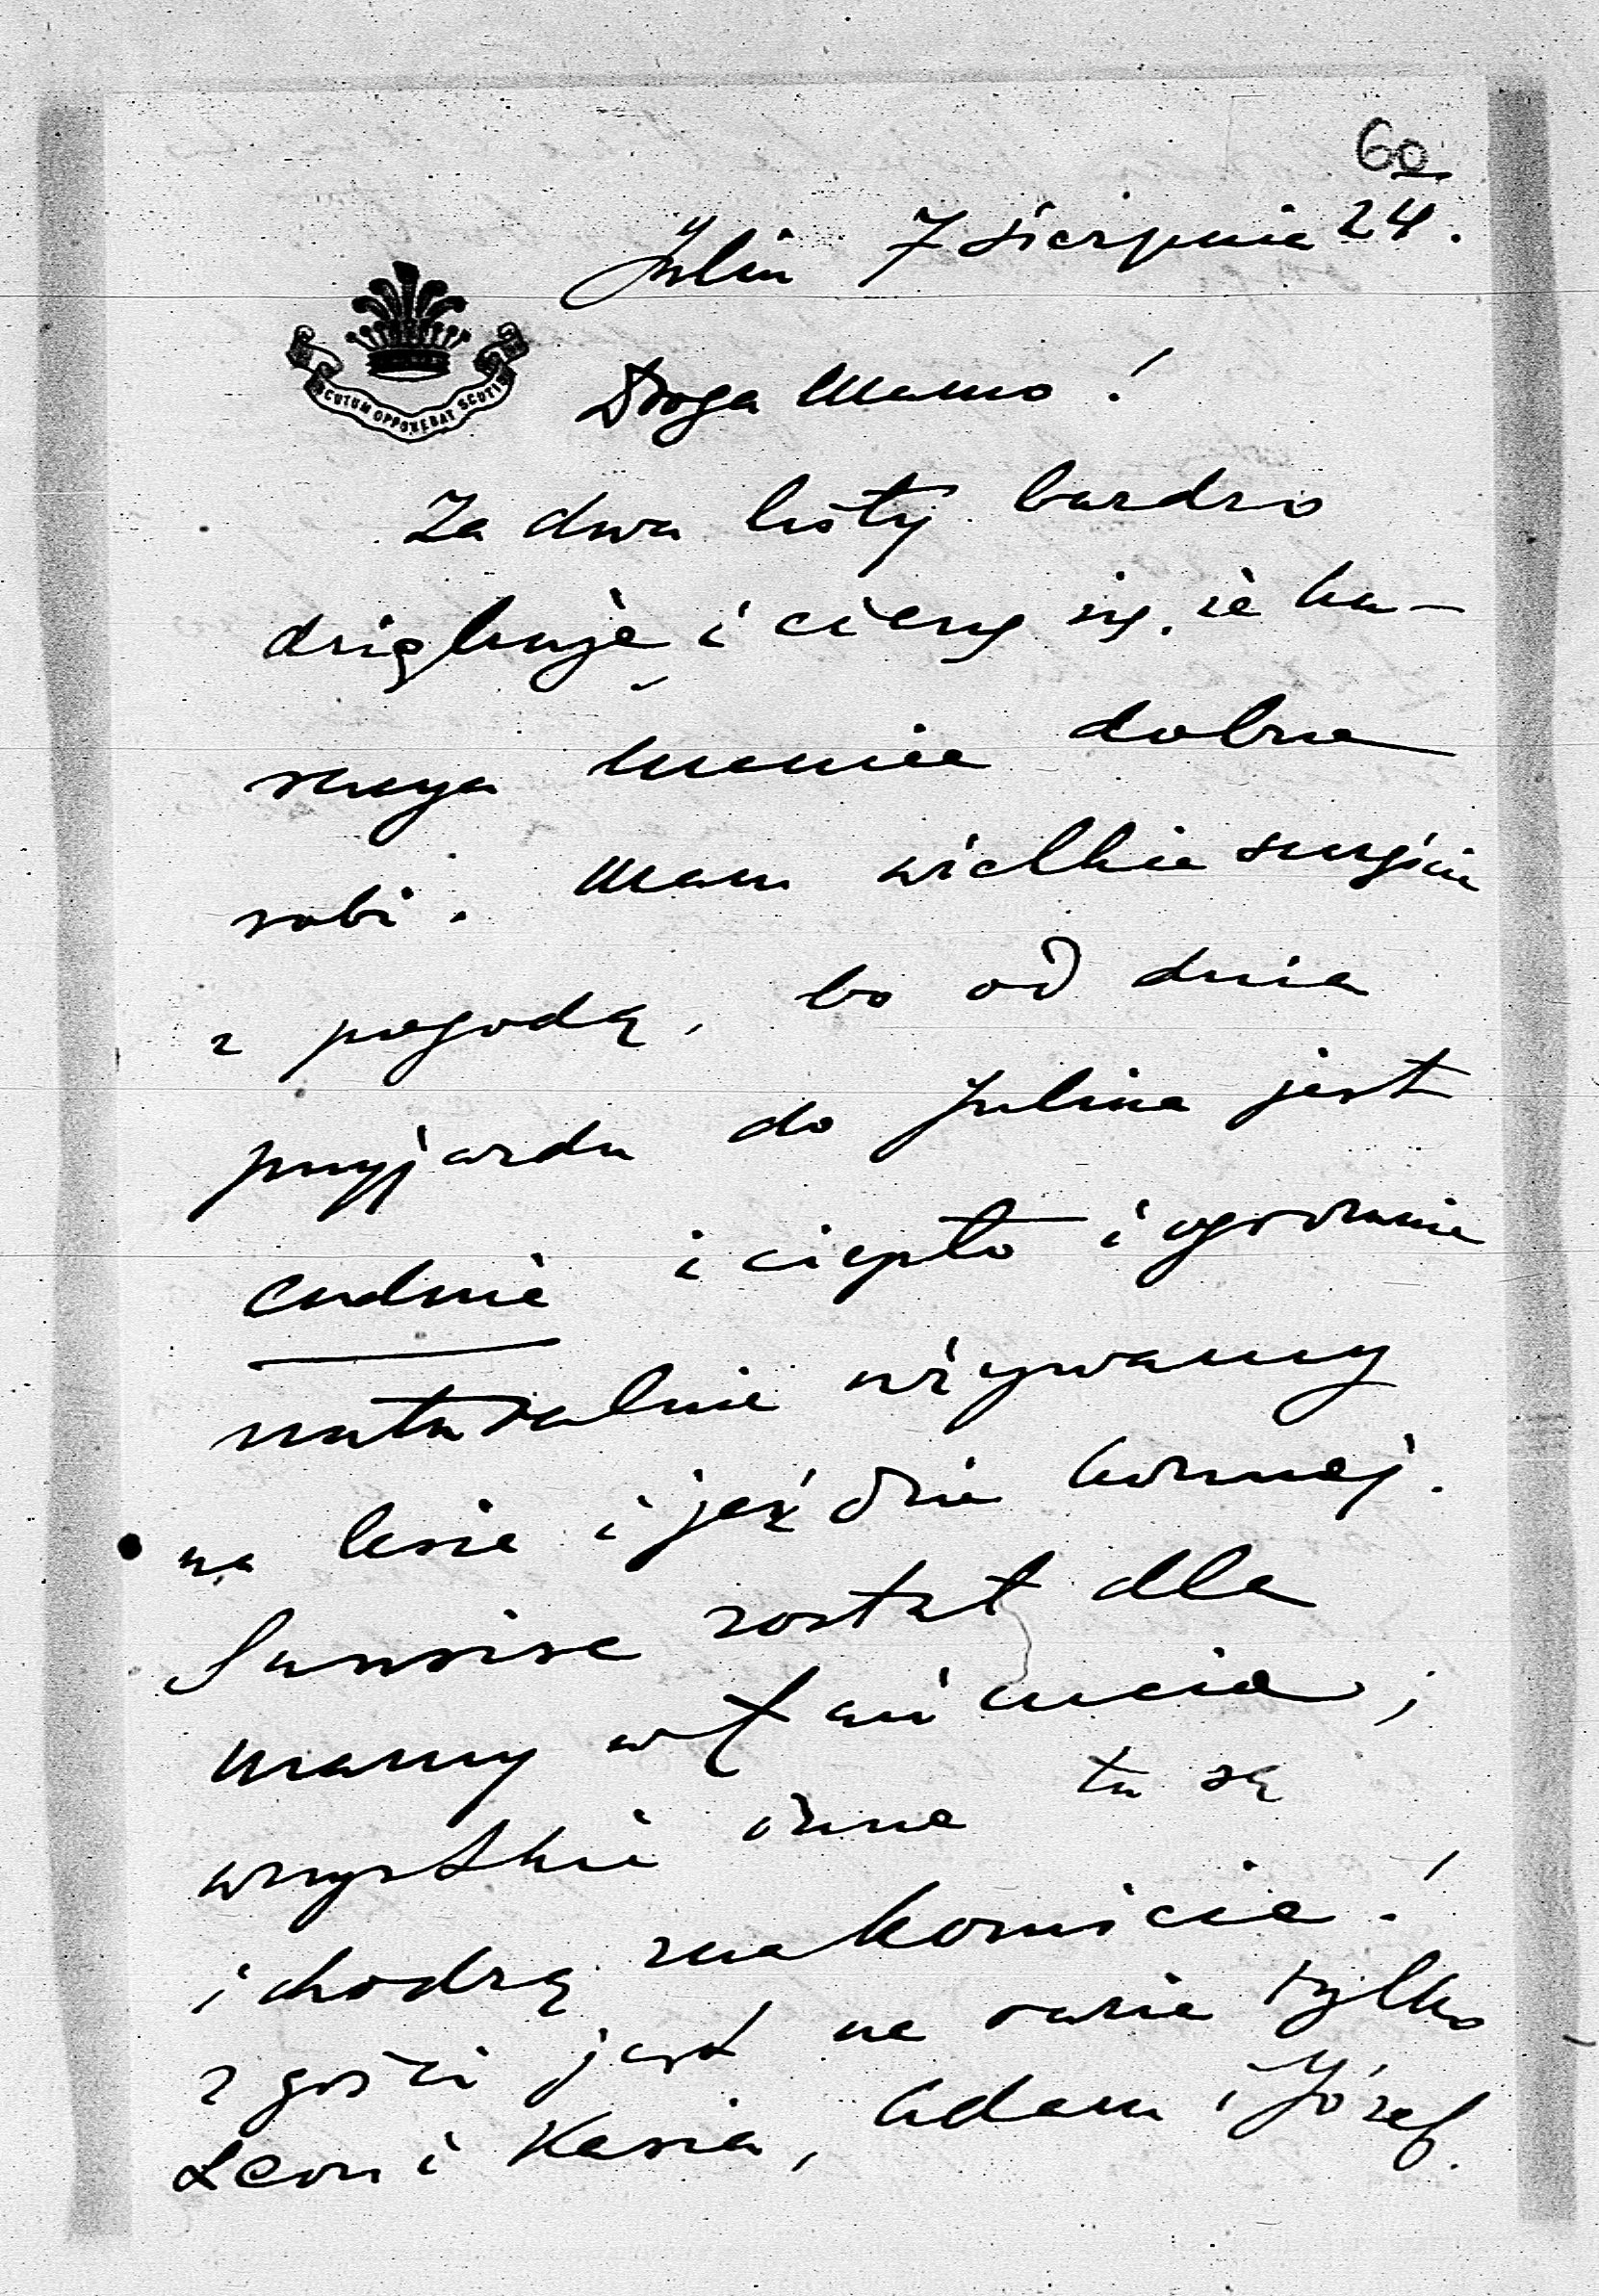 60
Julin 7 sierpnia 24.
SCUTUM OPPONEBAT SCUTIS
Droga Mamo!
Za dwa listy bardzo
dziękuję i cieszę się, że ku-
racya Mamie dobrze
robi. Mam wielkie szczęście
z pogodą, bo od dnia
przyjazdu do Julina jest
cudnie i ciepło i ogromnie
naturalnie używamy
na lesie i jeździe konnej.
Sunrise został dla
mamy w Łańcucie;
wszystkie inne tu są
i chodzą znakomicie!
z gości jest na razie tylko
Leon i Kasia, Adam i Józef.